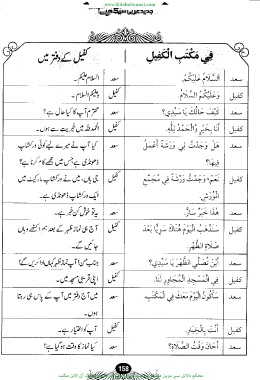 www.KitaboSunnat.com
جدید عربی سیکھیے
فِي مَكْتَبِ الْكَفِيلِ
کفیل کے دفتر میں
سعد اَلسَّلَامُ عَلَيْكُمْ. سعد السلام علیکم۔
كفيل وَعَلَيْكُمُ السَّلَامُ كفيل وعلیکم السلام۔
سعد كَيْفَ حَالُكَ يَا سَيِّدِي؟ سعد محترم آپ کا کیا حال ہے؟
كفيل أَنَا بِخَيْرٍ وَالْحَمْدُ لِلَّهِ. كفيل الحمد للہ میں خیریت سے ہوں۔
سعد هَلْ وَجَدْتَ لِي وَرْشَةً أَعْمَلُ سعد کیا آپ نے میرے لیے کوئی ورکشاپ
فِيهَا؟ ڈھونڈی ہے جس میں مجھے کام کرنا ہے؟
كفيل نَعَمْ، وَجَدْتُ وَرْشَةً فِي مُجَمَّعِ كفيل جی ہاں، میں نے ورکشاپ مارکیٹ میں
الْوِرَشِ. ایک ورکشاپ ڈھونڈی ہے۔
سعد هَذَا خَبَرٌ سَارٌّ. سعد یہ تو خوش کن خبر ہے۔
كفيل سَنَذْهَبُ الْيَوْمَ هُنَاكَ سَوِيًّا بَعْدَ كفيل آج ہی نماز ظہر کے بعد ہم اکٹھے وہاں
صَلَاةِ الظُّهْرِ. جائیں گے۔
سعد أَيْنَ تُصَلِّي الظُّهْرَ يَا سَيِّدِي؟ سعد جناب من! آپ نماز ظہر کہاں ادا کریں گے؟
كفيل فِي الْمَسْجِدِ الْمُجَاوِرِ لَنَا. كفيل اپنی قریبی مسجد میں۔
سعد سَأَكُونُ الْيَوْمَ مَعَكَ فِي الْمَكْتَبِ. سعد میں آج دفتر میں آپ کے پاس ہی رہتا
ہوں۔
كفيل أَنْتَ بِالْخِيَارِ. كفيل آپ کو اختیار ہے۔
سعد أَحَانَ وَقْتُ الصَّلَاةِ؟ سعد کیا نماز کا وقت ہو گیا ہے؟
158